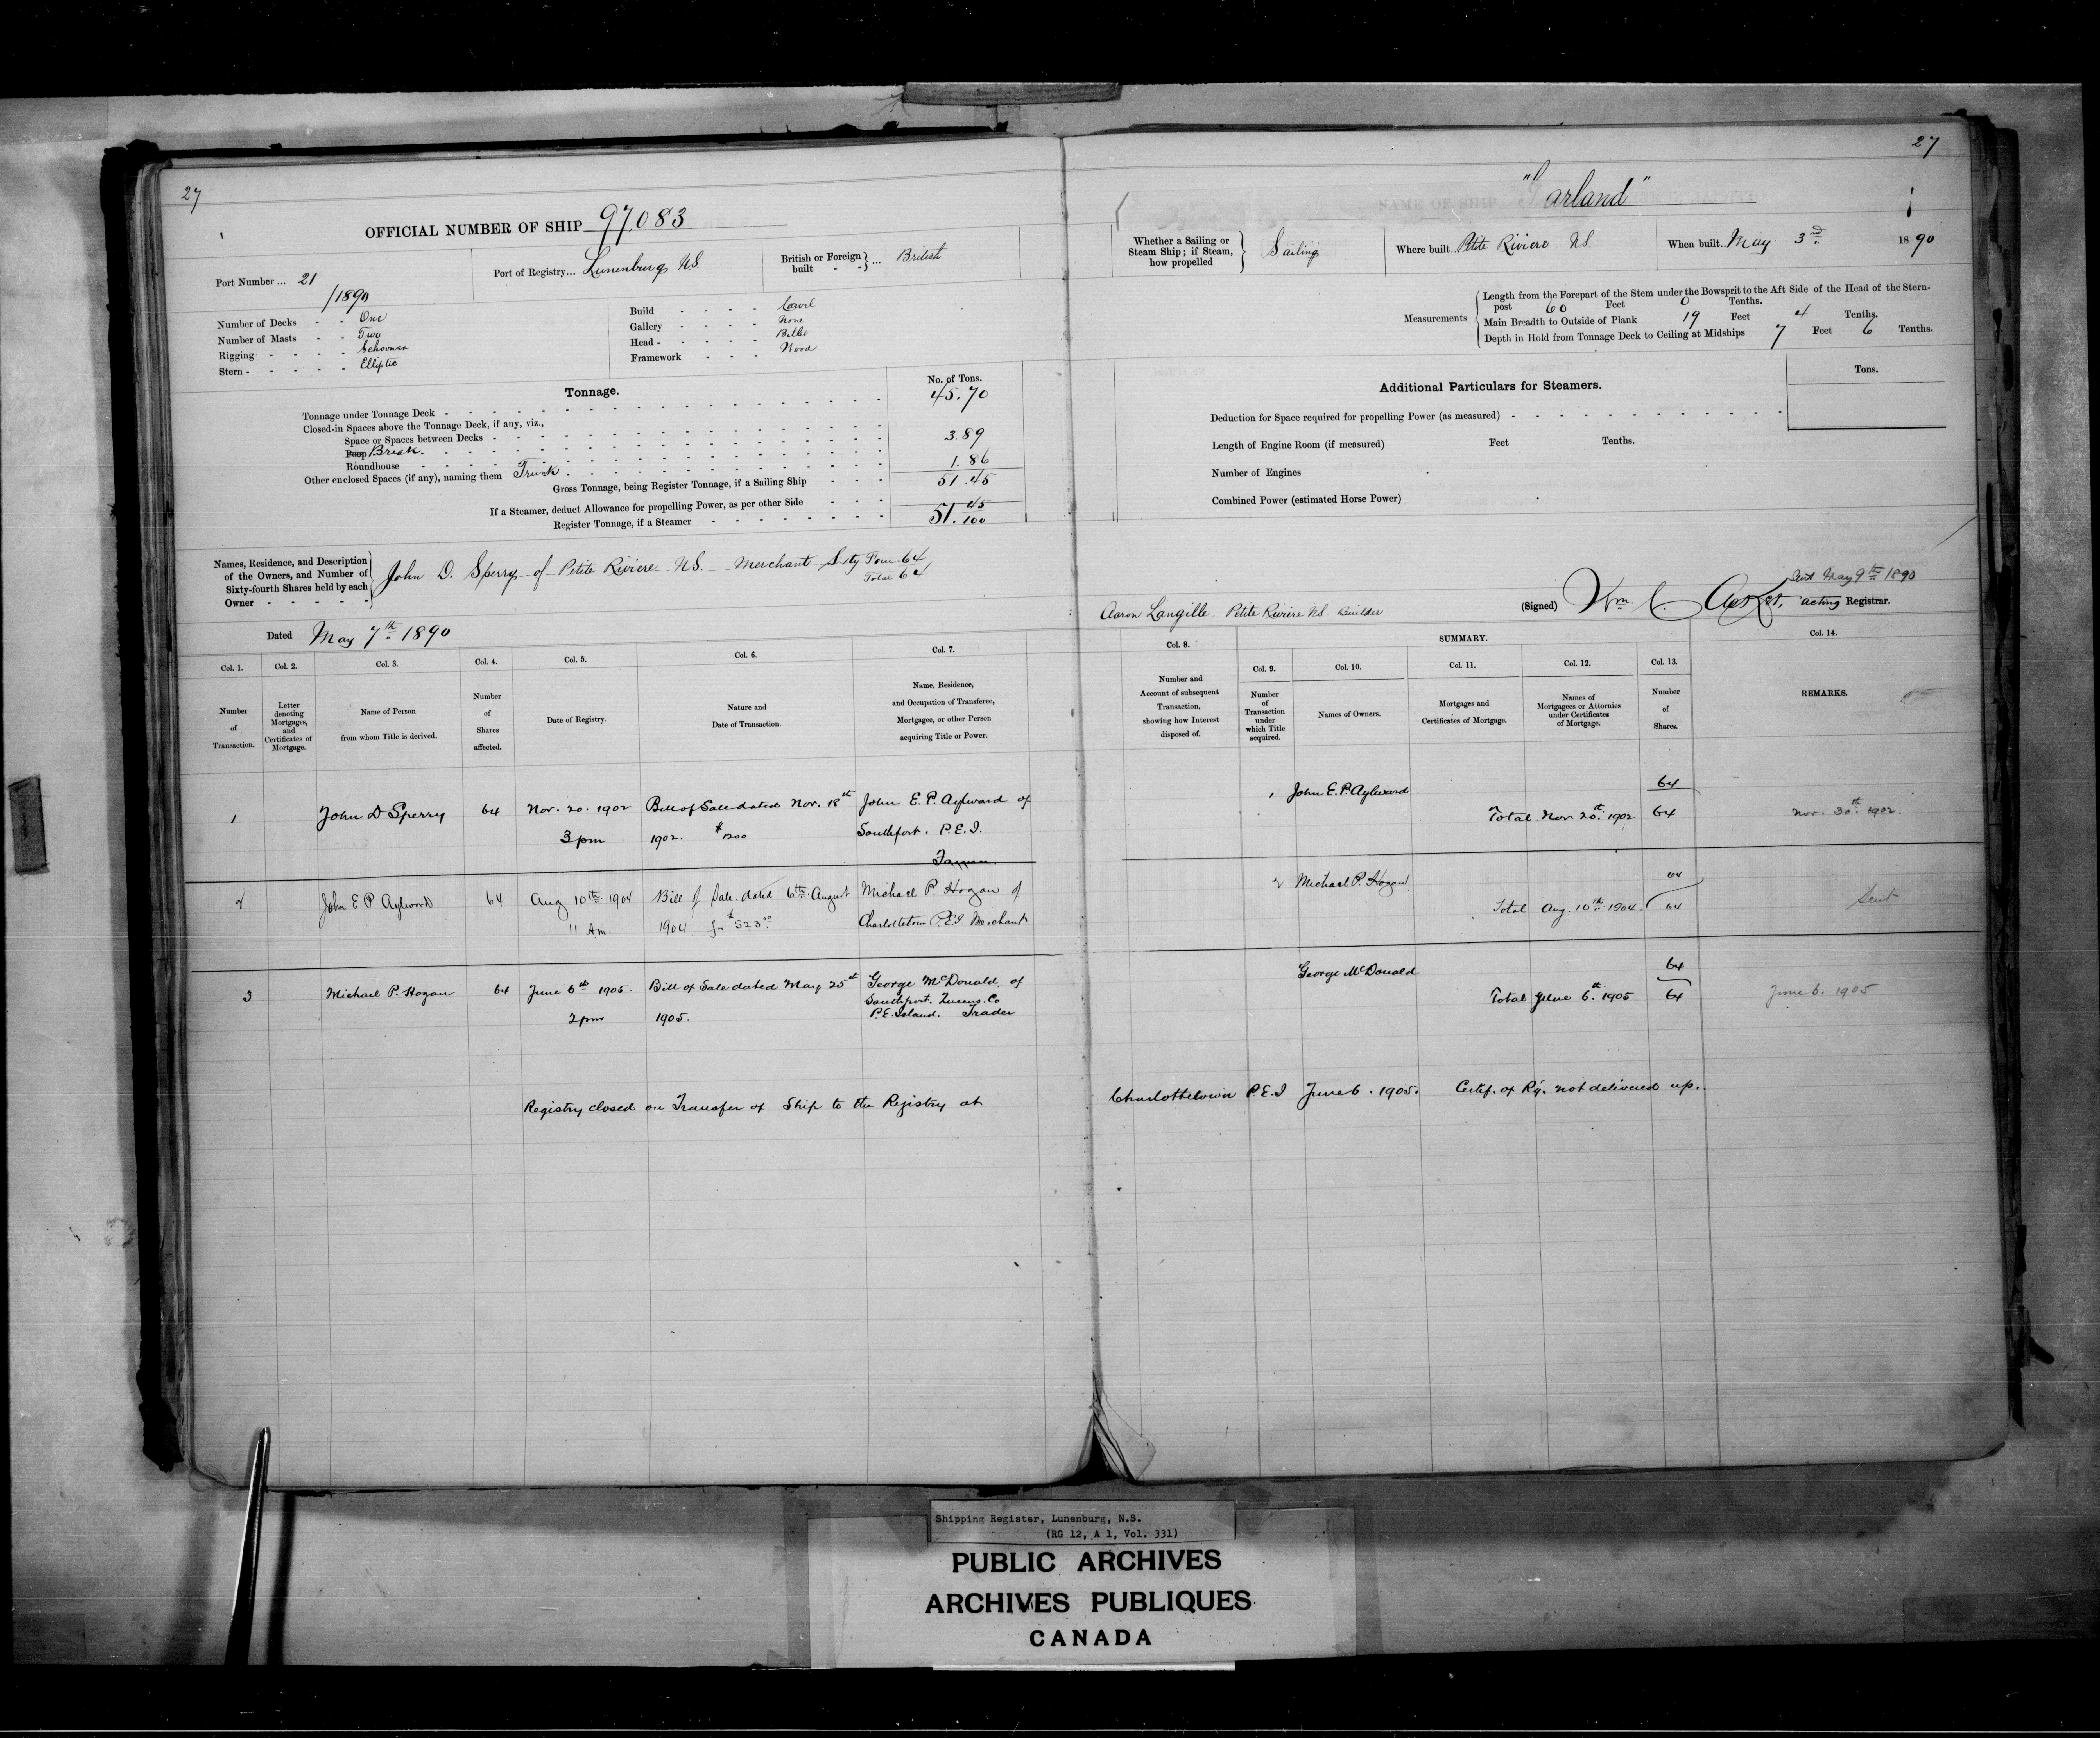 27
OFFICIAL NUMBER OF SHIP 97,083
Port Number ... 21 /1890
Port of Registry... Lunenburg N.S.
British or Foreign built - - } ... British
Number of Decks - - One
Number of Masts - - Two
Rigging - - - - - Schooner
Stern - - - - - - Elliptic
Build - - - - Carvel
Gallery - - - - None
Head - - - - - Billet
Framework - - - Wood
Tonnage.
No. of Tons.
Tonnage under Tonnage Deck - 45.70
Closed-in Spaces above the Tonnage Deck, if any, viz.,
Space or Spaces between Decks -
Poop Break. 3.89
Roundhouse
Other enclosed Spaces (if any), naming them Trunk 1.86
Gross Tonnage, being Register Tonnage, if a Sailing Ship - - - 51.45
If a Steamer, deduct Allowance for propelling Power, as per other Side - - -
Register Tonnage, if a Steamer - 51. 45/100
Names, Residence, and Description of the Owners, and Number of Sixty-fourth Shares held by each Owner - - - - -
John D. Sperry of Petite Riviere N.S. Merchant Sixty Four 64
Total 64
Dated May 7th 1890
Col. 1. Col. 2. Col. 3. Col. 4. Col. 5. Col. 6. Col. 7.
Number of Transaction.
Letter denoting Mortgages, and Certificates of Mortgage.
Name of Person from whom Title is derived.
Number of Shares affected.
Date of Registry.
Nature and Date of Transaction.
Name, Residence, and Occupation of Transferee, Mortgagee, or other Person acquiring Title or Power.
1 John D Sperry 64 Nov. 20. 1902 Bill of Sale dated Nov. 18th John E. P. Aylward of
3 pm 1902. $1200 Southport. P.E.I.
2 John E. P. Aylward 64 Aug 10th 1904 Bill of Sale dated 6th August Michael P. Hogan of
11 Am 1904 Charlottetown P.E.I Merchant
3 Michael P. Hogan 64 June 6th 1905. Bill of Sale dated May 25th George McDonald of
2 pm 1905. Southport. Queens. Co
P.E. Island. Trader
Registry closed on Transfer of Ship to the Registry at
27
NAME OF SHIP "Garland"
Whether a Sailing or Steam Ship; if Steam, how propelled } Sailing
Where built.. Petite Riviere N.S.
When built.. May 3rd. 1890
Measurements
Length from the Forepart of the Stem under the Bowsprit to the Aft Side of the Head of the Stern-
post 60 Feet 0 Tenths.
Main Breadth to Outside of Plank 19 Feet 4 Tenths.
Depth in Hold from Tonnage Deck to Ceiling at Midships 7 Feet 6 Tenths.
Additional Particulars for Steamers.
Tons.
Deduction for Space required for propelling Power (as measured) -
Length of Engine Room (if measured) Feet Tenths.
Number of Engines
Combined Power (estimated Horse Power)
Sent May 9th 1890
Aaron Langille. Petite Riviere N.S. Builder
(Signed) Wm. acting Registrar.
Col. 8. SUMMARY. Col. 14.
Col. 9. Col. 10. Col. 11. Col. 12. Col. 13.
Number and Account of subsequent Transaction, showing how Interest disposed of.
Number of Transaction under which Title acquired.
Names of Owners.
Mortgages and Certificates of Mortgage.
Names of Mortgagees or Attornies under Certificates of Mortgage.
Number of Shares.
REMARKS.
1 John E. P. Aylward 64
Total Nov. 20th. 1902 64 Nov. 30th. 1902.
2 Michael P. Hogan 64
Total Aug. 10th 1904. 64 Sent
George McDonald 64
Total June 6th. 1905 64 June 6. 1905
Charlottetown P.E.I June 6. 1905. Certif. of Rg. not delivered up.
Shipping Register, Lunenburg, N.S.
(RG 12, A 1, Vol. 331)
PUBLIC ARCHIVES
ARCHIVES PUBLIQUES
CANADA